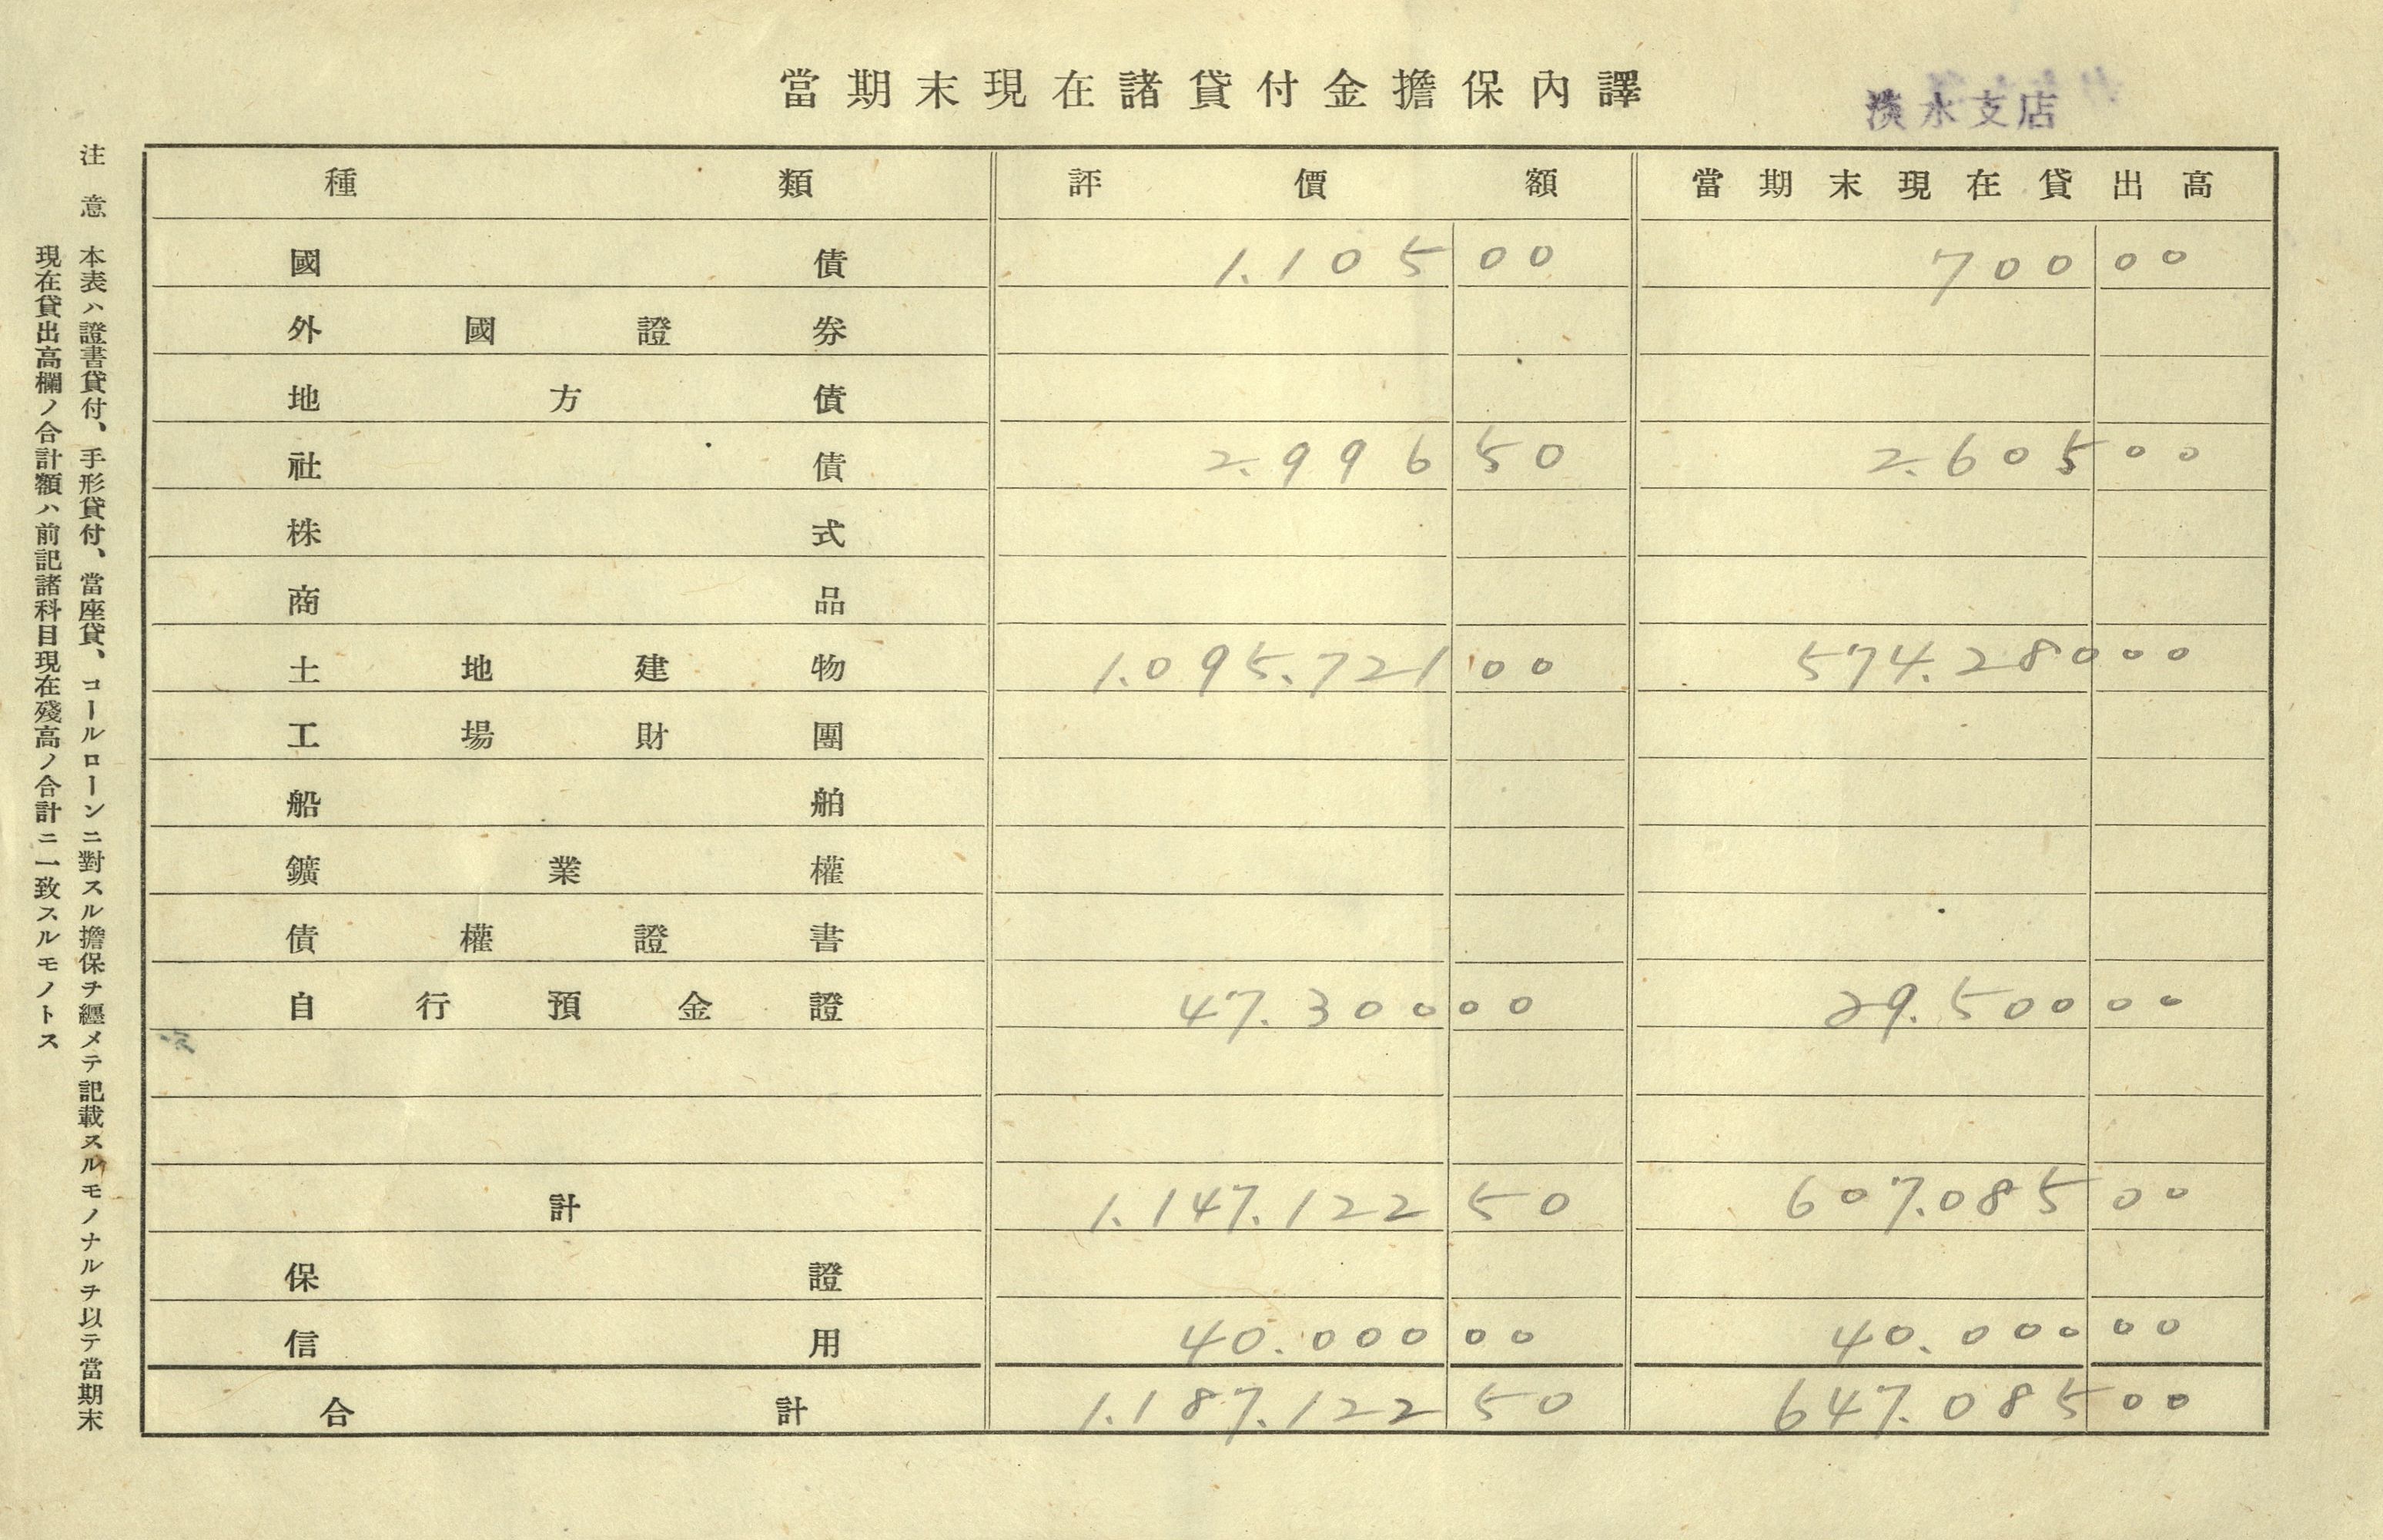 當期末現在諸貸付金擔保內譯
淡水支店
種類 評價額 當期末現在貸出高
國債 1.105 00 700 00
外國證券
地方債
社債 2.996 50 2.605 00
株式
商品
土地建物 1.095.721 00 574.280 00
工場財團
船舶
鑛業權
債權證書
自行預金證 47.300 00 29.500 00
計 1.147.122 50 607.085 00
保證
信用 40.000 00 40.000 00
合計 1.187.122 50 647.085 00
注意 本表ハ證書貸付、手形貸付、當座貸、コールローンニ對スル擔保ヲ纒メテ記載スルモノナルヲ以テ當期末
現在貸出高欄ノ合計額ハ前記諸科目現在殘高ノ合計ニ一致スルモノトス